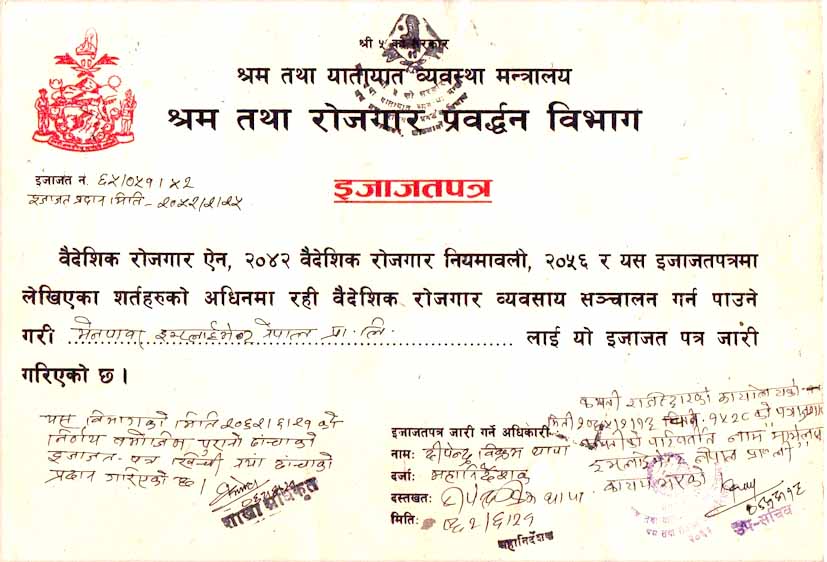 श्री ५ को सरकार
श्रम तथा यातायात व्यवस्था मन्त्रालय
श्रम तथा रोजगार प्रवर्द्धन विभाग
इजाजत नं. ६५/०५१।५२
इजाजत प्रदान मिति- २०५२/२/२५
इजाजतपत्र
वैदेशिक रोजगार ऐन, २०४२ वैदेशिक रोजगार नियमावली, २०५६ र यस इजाजतपत्रमा
लेखिएका शर्तहरुको अधिनमा रही वैदेशिक रोजगार व्यवसाय सञ्चालन गर्न पाउने
गरी मेनपावर इम्लाईमेन्ट नेपाल प्रा. लि. लाई यो इजाजत पत्र जारी
गरिएको छ ।
यस विभागको मिति २०६२।६।२१ को
निर्णय बमोजिम पुरानो ढांचाको
इजाजत-पत्र खिची नयां ढांचाको
प्रदान गरिएको छ।
शाखा अधिकृत
इजाजतपत्र जारी गर्ने अधिकारी
नामः दीपेन्द्र विक्रम थापा
दर्जाः महानिर्देशक
दस्तखतः
मितिः ०६२/६/२१
महानिर्देशक
कम्पनी रजिष्ट्रारको कार्यालयको
को पत्र
परिवर्तित नाम
नेपाल प्रा.लि.
कायम गरेको
उप-सचिव